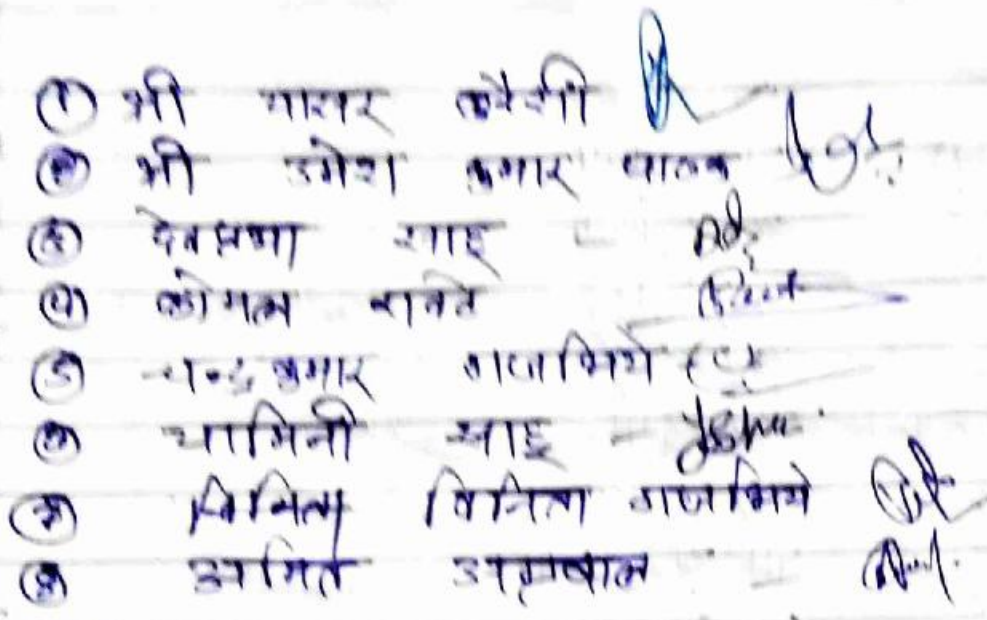 ① श्री यासर कुरैशी
② श्री उमेश कुमार पाठक
③ देवप्रभा साहू -
④ कोमल रावते
⑤ चन्द्रकुमार गजभिये
⑥ यामिनी साहू -
⑦ विनिता गजभिये
⑧ अमित अग्रवाल -